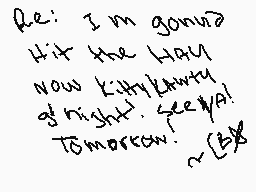 Re: I'm gonna
Hit the HAY
NOW KittyKAWty
g'night! see YA!
Tomorrow!